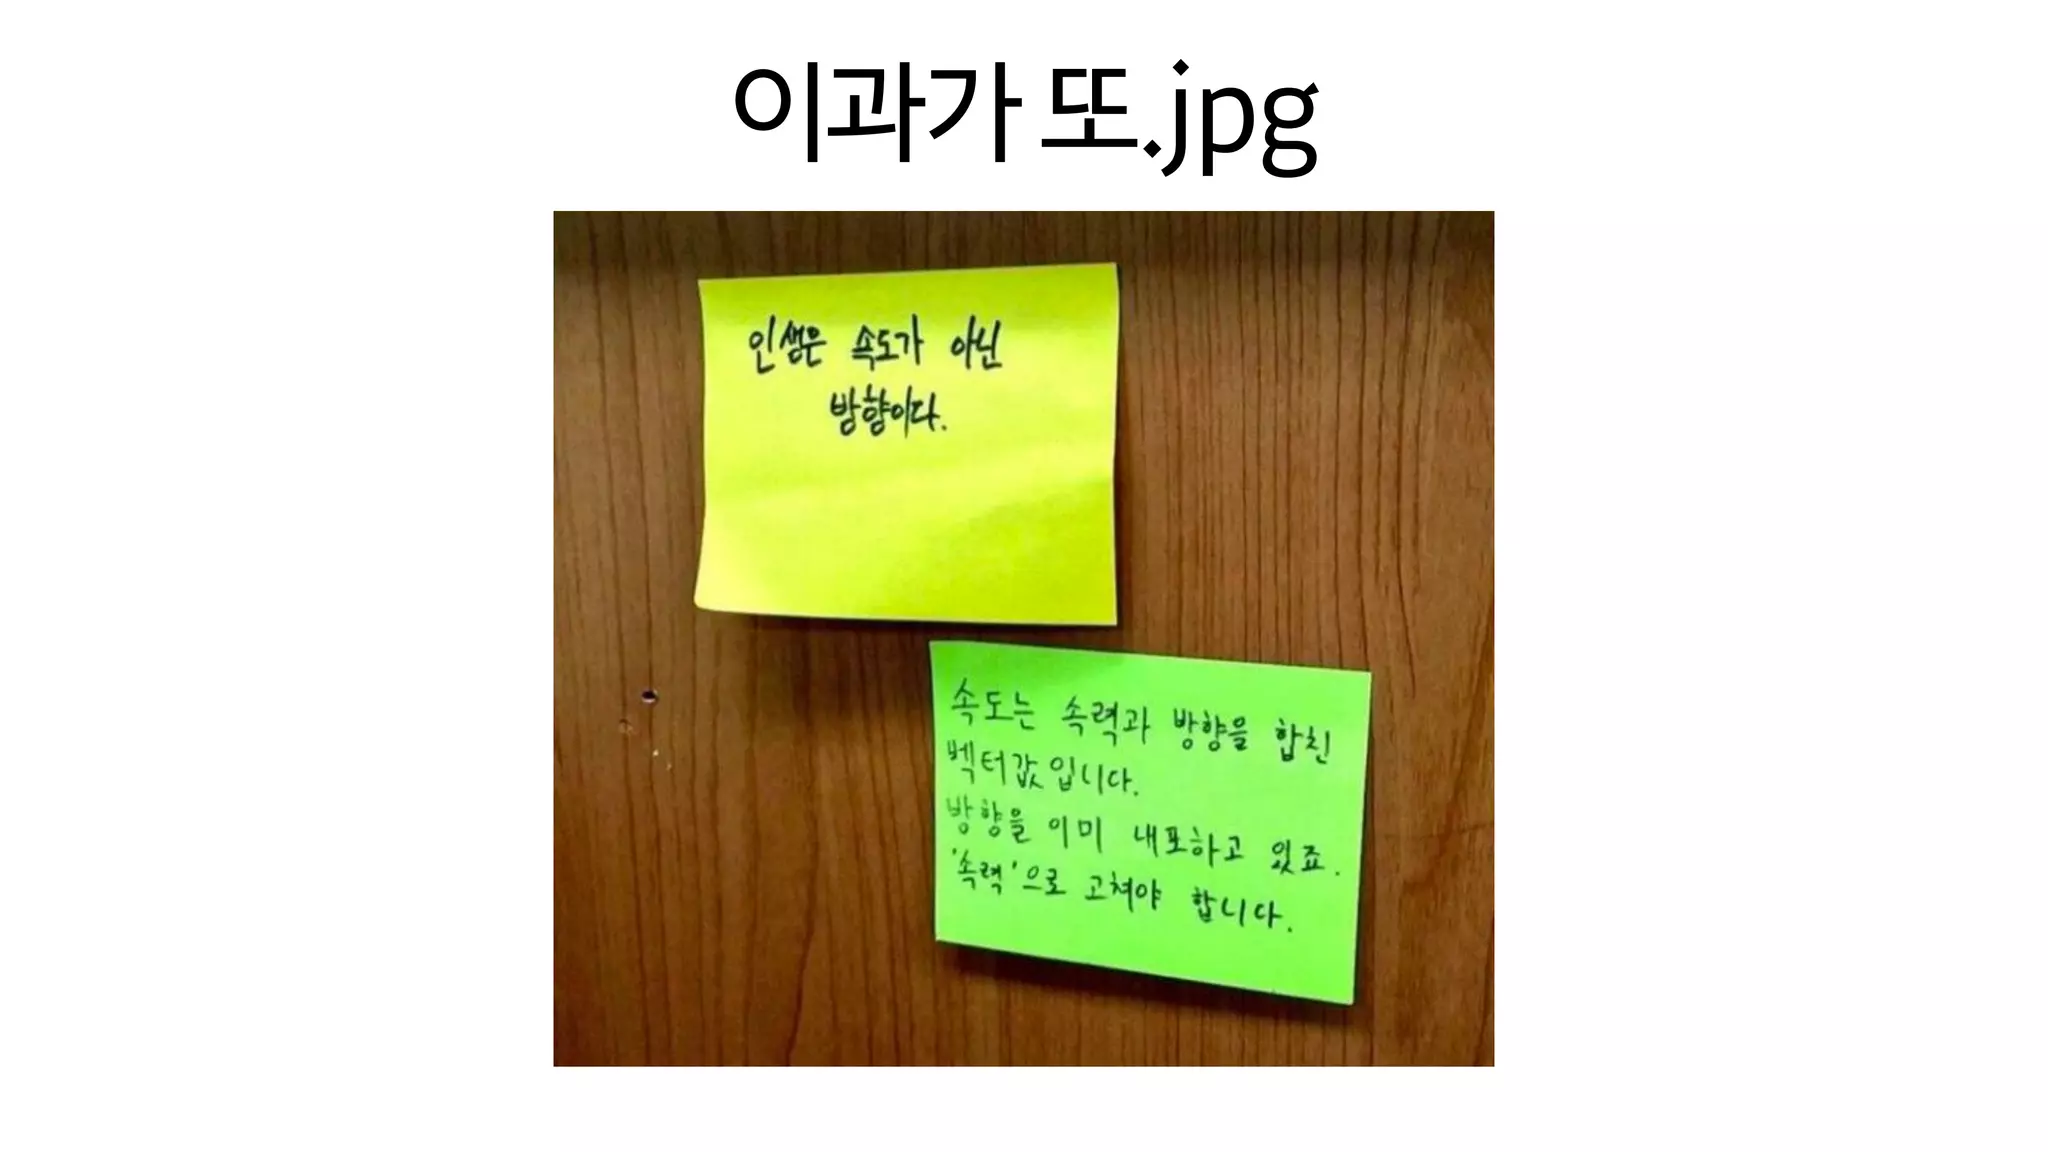 이과가 또.jpg
인생은 속도가 아닌
방향이다.
속도는 속력과 방향을 합친
벡터값입니다.
방향을 이미 내포하고 있죠.
'속력'으로 고쳐야 합니다.